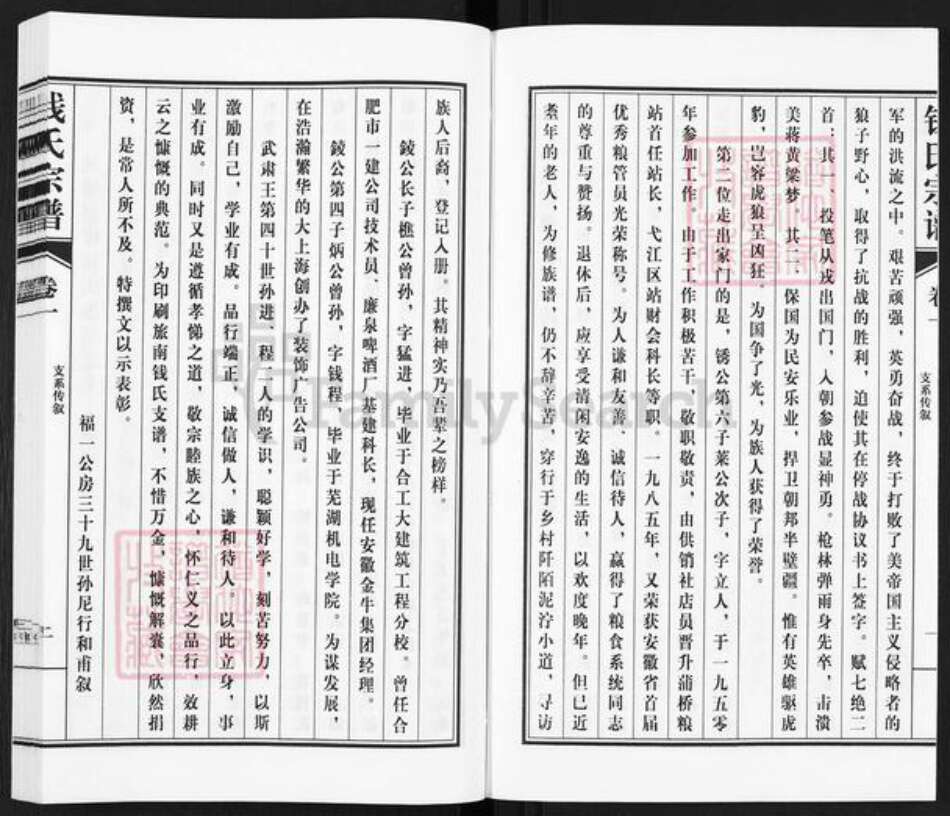 军的洪流之中。艰苦顽强，英勇奋战，终于打败了美帝国主义侵略者的
狼子野心，取得了抗战的胜利，迫使其在停战协议书上签字。赋七绝二
首：其一、投笔从戎出国门，人朝参战显神勇。枪林弹雨身先卒，击溃
美蒋黄粱梦。其二、保国为民安乐业，捍卫朝邦半壁疆。惟有英雄驱虎
豹，岂容虎狼呈凶狂。为国争了光，为族人获得了荣誉。
第二位走出家门的是，锈公第六子莱公次子，字立人，于一九五零
年参加工作。由于工作积极苦干、敬职敬责，由供销社店员晋升蒲桥粮
站首任站长，弋江区站财会科长等职。一九八五年，又荣获安徽省首届
优秀粮管员光荣称号。为人谦和友善、诚信待人，赢得了粮食系统同志
的尊重与赞扬。退休后，应享受清闲安逸的生活，以欢度晚年。但已近
耄年的老人，为修族谱，仍不辞辛苦，穿行于乡村阡陌泥泞小道，寻访
支系传叙
族人后裔，登记入册。其精神实乃吾辈之榜样。
錂公长子樵公曾孙，字猛进，毕业于合工大建筑工程分校。曾任合
肥市一建公司技术员、廉泉啤酒厂基建科长，现任安徽金牛集团经理。
錂公第四子炳公曾孙，字钱程，毕业于芜湖机电学院。为谋发展，
在浩瀚繁华的大上海创办了装饰广告公司。
武肃王第四十世孙进、程二人的学识，聪颖好学，刻苦努力，以斯
激励自己，学业有成。品行端正，诚信做人，谦和待人。以此立身，事
业有成。同时又是遵循孝悌之道，敬宗睦族之心，怀仁义之品行，效耕
云之慷慨的典范。为印刷旅南钱氏支谱，不惜万金，慷慨解囊，欣然捐
资，是常人所不及。特撰文以示表彰。
福一公房三十九世孙尼行和甫叙
钱氏宗谱
卷一
支系传叙
FamilySearch